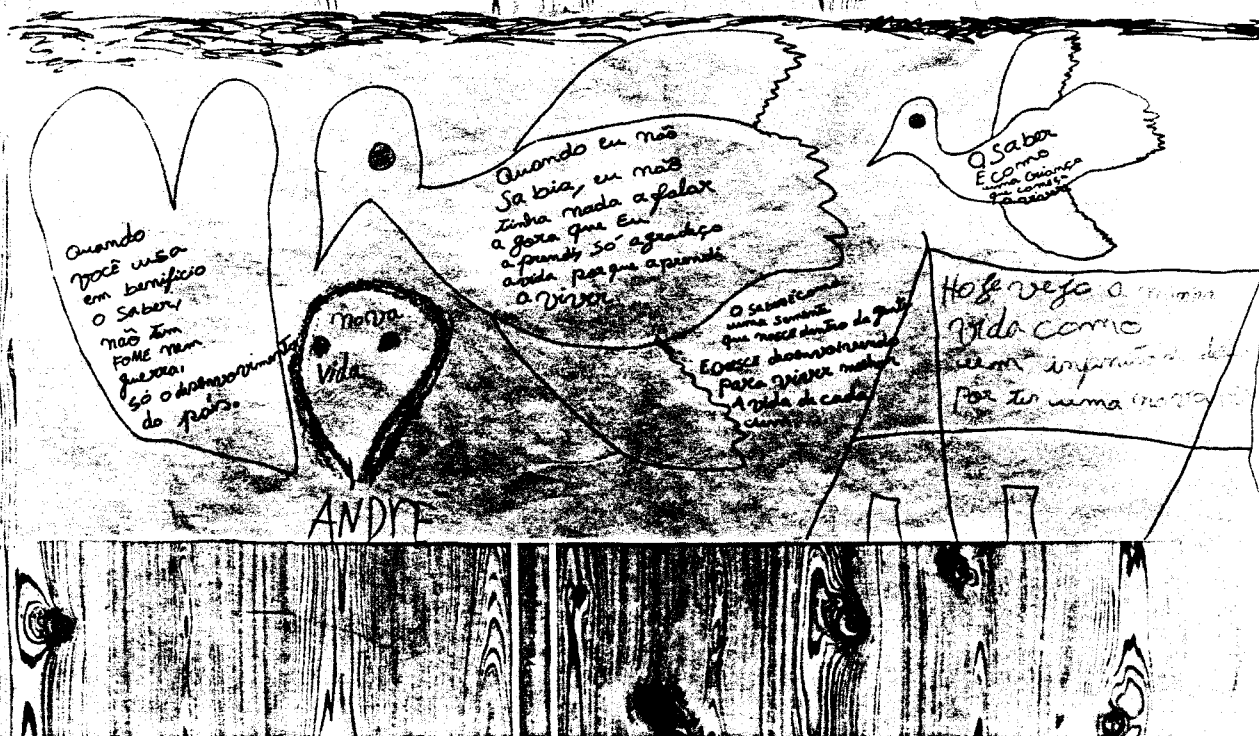 Quando
você usa
em benificio
o saber,
não tem
FOME nem
guerra,
só o desenvorvimento
do país.
nova
vida
ANDR
Quando eu não
Sabia, eu não
tinha nada a falar
a gora que Eu
aprendi, só agradeço
a vida porque aprendi
a viver
O Saber é como
uma semente
que nasce dentro da gente
E cresce desenvorvendo
para viver melhor
A vida de cada
um
O Saber
E como
uma criança
que comesa
Hoje vejo a minha
vida como
um
Por ter uma nova